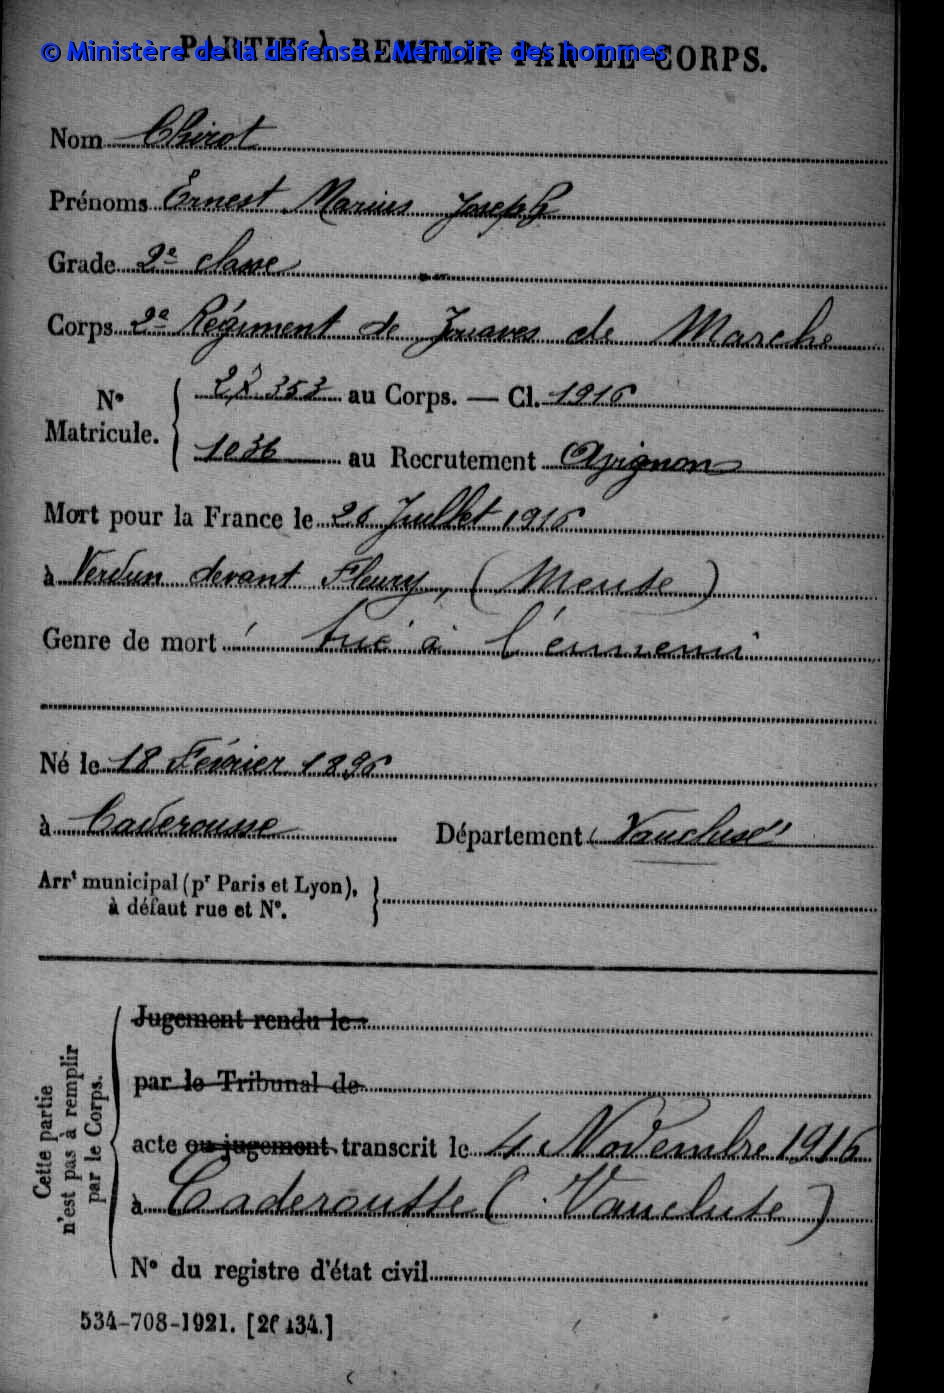 © Ministère de la défense - Mémoire des hommes
PARTIE À REMPLIR PAR LE CORPS.
Nom Chirot
Prénoms Ernest Marius Joseph
Grade 2e classe
Corps 2e Régiment de Zouaves de Marche
N° Matricule. 353 au Corps. — Cl. 1916
1036 au Recrutement Avignon
Mort pour la France le 26 Juillet 1916
à Verdun devant Fleury, (Meuse)
Genre de mort tué à l'ennemi
Né le 18 Février 1896
à Caderousse Département Vaucluse
Arrt municipal (pr Paris et Lyon),
à défaut rue et N°.
Cette partie
n'est pas à remplir
par le Corps.
Jugement rendu le
par le Tribunal de
acte ou jugement transcrit le 4 Novembre 1916
à Caderousse (Vaucluse)
N° du registre d'état civil
534-708-1921. [26434.]